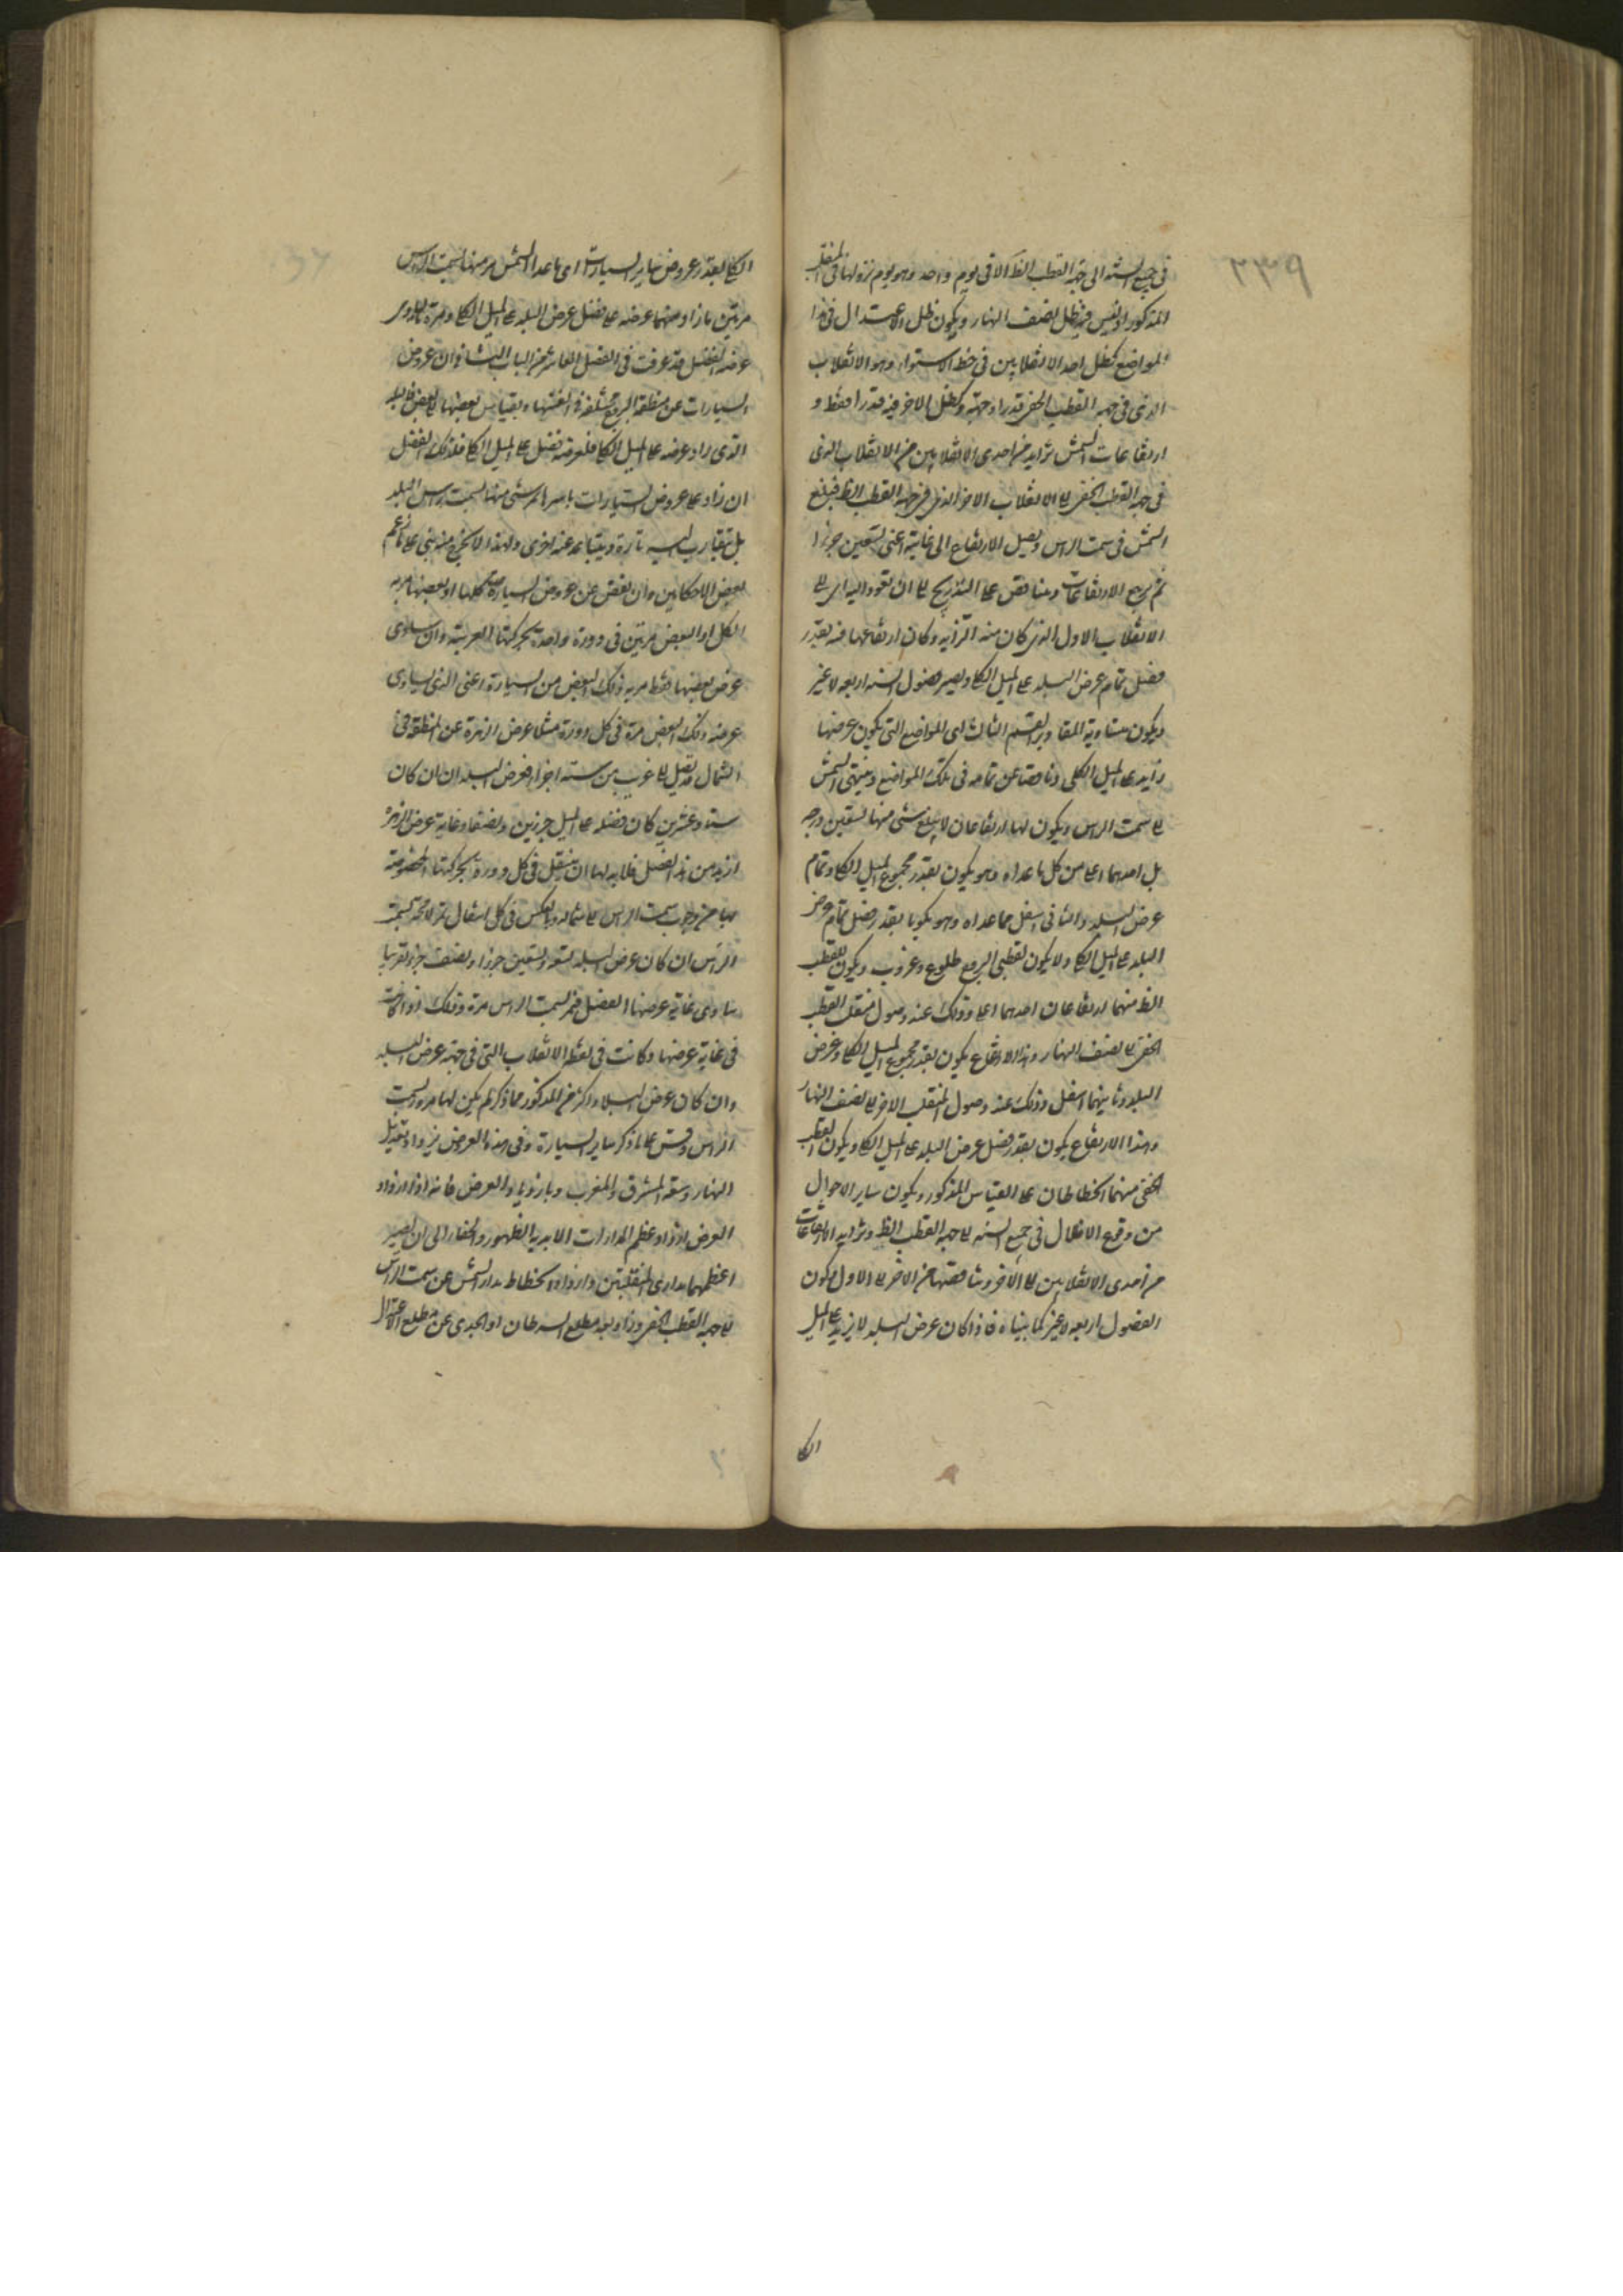 ٢٣٩
في جميع السنة الى جهة القطب الظ الا في يوم واحد وهو يوم نزولها في المنقلب
المذكور اذ ليس فيه ظل لنصف النهار ويكون ظل الاعتدال في هذا
المواضع كظل احد الانقلابين في خط الاستواء وهو الانقلاب
الذى في جهة القطب الخفى قدرا وجهة وكظل الاخر فيه قدرا فقط و
ارتفاعات الشمس تزايد من احدى الانقلابين من الانقلاب الذى
في جهة القطب الخفى الى الانقلاب الاخر الذى في جهة القطب الظ فيبلغ
الشمس في سمت الراس ويصل الارتفاع الى غايته اعنى تسعين جزءا
ثم يرجع الارتفاعات وتناقص على التدريج الى ان تعود اليه اى الى
الانقلاب الاول الذى كان منه التزايد وكان ارتفاعها فيه بقدر
فضل تمام عرض البلد على الميل الكلى ويصير فصول السنة اربعة لا غير
ويكون متساوية المقادير القسم الثالث اى المواضع التى يكون عرضها
زايد على الميل الكلى وناقصا عن تمامه في تلك المواضع وينتهى الشمس
الى سمت الراس ويكون لها ارتفاعان لا يبلغ شئ منهما تسعين درجه
بل احدهما اعلى من كل ما عداه وهو يكون بقدر مجموع الميل الكلى وتمام
عرض البلد والثانى اسفل مما عداه وهو يكون بقدر فضل تمام عرض
البلد على الميل الكلى ولا يكون لقطبى البروج طلوع وغروب ويكون للقطب
الظ منهما ارتفاعان احدهما اعلى وذلك عند وصول منقلب القطب
الخفى الى نصف النهار وهذا الارتفاع يكون بقدر مجموع الميل الكلى وعرض
البلد وثانيهما اسفل وذلك عند وصول المنقلب الاخر الى نصف النهار
وهذا الارتفاع يكون بقدر فضل عرض البلد على الميل الكلى ويكون للقطب
الخفى منهما انحطاطان على القياس المذكور ويكون ساير الاحوال
من وقوع الاظلال في جميع السنه الى جهة القطب الظ وتزايد الارتفاعات
من احدى الانقلابين الى الاخر وتناقصها من الاخر الى الاول وكون
الفصول اربعه لا غير كما بيناه فاذا كان عرض البلد لا يزيد على الميل
الكلى
الكلى بقدر عروض ساير السيارات اى ما عدا الشمس مر منها بسمت الراس
مرتين ما زاد منهما عرضه على فضل عرض البلد على الميل الكلى ومرة ما يساوى
عرضه الفضل قد عرفت في الفصل العاشر من الباب الثانى ان عروض
السيارات عن منطقة البروج مختلفة في انفسها وبقياس بعضها الى بعض فالبلد
الذى زاد عرضه على الميل الكلى فلعرضه فضل على الميل الكلى فذلك الفضل
ان زاد على عروض السيارات باسرها لم يمر شئ منها بسمت راس البلد
بل تتقارب اليه تارة ويتباعد عنه اخرى ولهذا
بعض الاحكاميين وان نقص عن عروض السيارة كلها او بعضها مر به
الكل او البعض مرتين في دورة واحدة بحركتها الغربية وان ساوى
عرض بعضها فقط مر به ذلك البعض من السيارة اعنى الذى يساوى
عرضه ذلك البعض مرة في كل دورة مثلا عرض الزهرة عن المنطقة في
الشمال قد يصل الى قريب من ستة اجزاء فعرض البلد ان كان
ستا وعشرين كان فضله على الميل جزئين ونصفا وغاية عرض الزهرة
ازيد من هذا الفضل فلا بد لها ان ينتقل في كل دورة بحركتها المخصوصة
بها من جنوب سمت الراس الى شماله وبالعكس في كل انتقال تمر لا محه بسمت
الراس ان كان عرض البلد تسعة وعشرين جزءا ونصف جزء تقريبا
ساوى غاية عرضها الفضل فمر بسمت الراس مرة وذلك اذا كانت
في غاية عرضها وكانت في نقطة الانقلاب التى في جهة عرض البلد
وان كان عرض البلد اكثر من المذكور مما ذكر لم يكن لها مرور بسمت
الراس وقس على ما ذكر ساير السيارة وفي هذه العروض يزداد تعديل
النهار وسعة المشرق والمغرب بازدياد العرض فانه اذا ازداد
العرض ازداد عظم المدارات الابدية الظهور والخفاء الى ان يصير
اعظمهما مدارى المنقلبين وازداد انحطاط مدار الشمس عن سمت الراس
الى جهة القطب الخفى وزاد بعد مطلع السرطان او الجدى عن مطلع الاعتدال